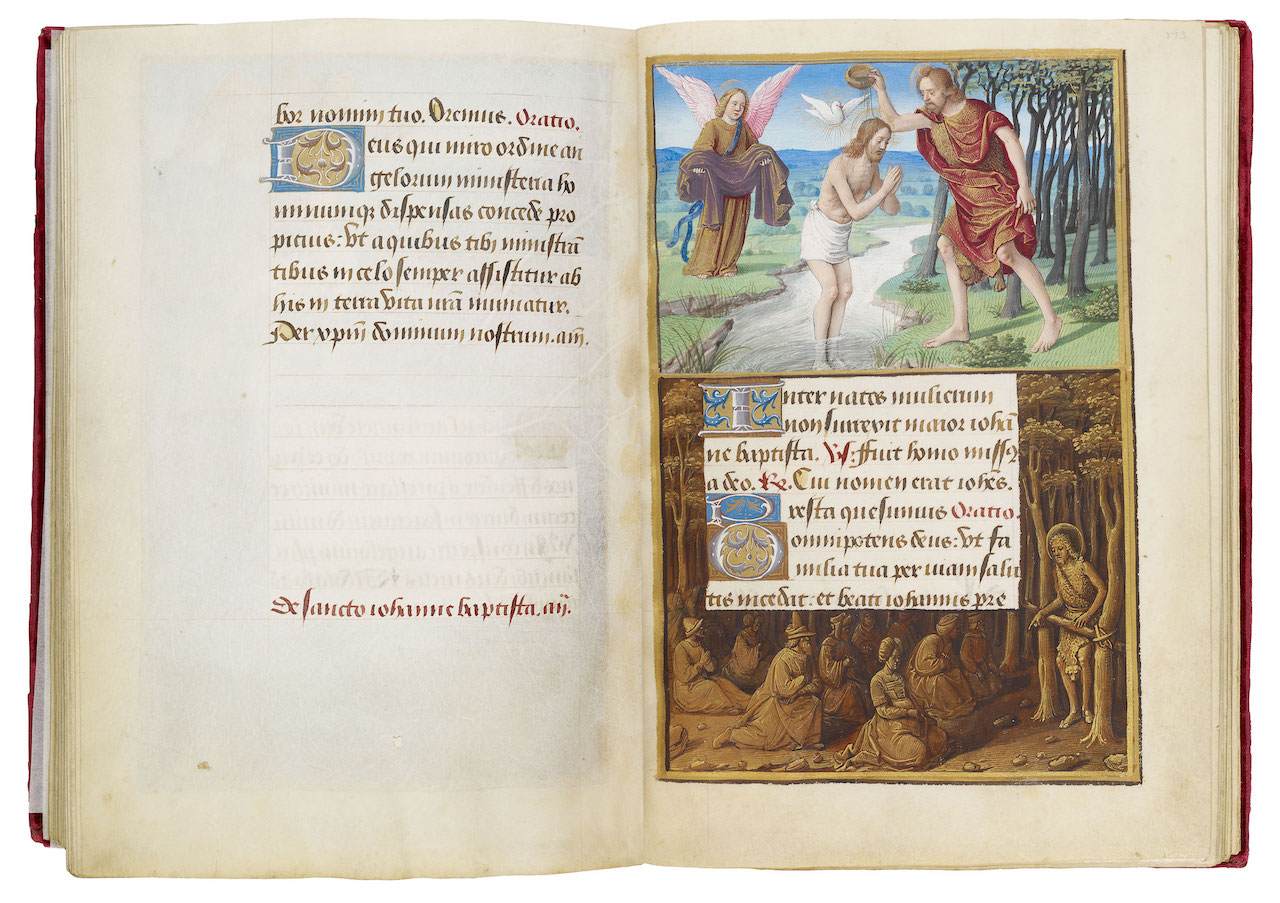 bor nomini tuo. Oremus. Oratio.
Deus qui miro ordine an
gelorum ministeria ho
minumq; dispensas concede pro
picius: Vt a quibus tibi ministrā
tibus in celo semper assistitur ab
his in terra vita nrā muniatur.
Per xpm̄ dominum nostrum. am̄.
de sancto iohanne baptista. añ.
173
Inter natos mulierum
non surrexit maior iohā
ne baptista. V̸s. ffuit homo missꝰ
a deo. R̸. Cui nomen erat iohes.
Presta quesumus Oratio.
omnipotens deus: Vt fa
milia tua per viam salu
tis incedat. et beati iohannis pre